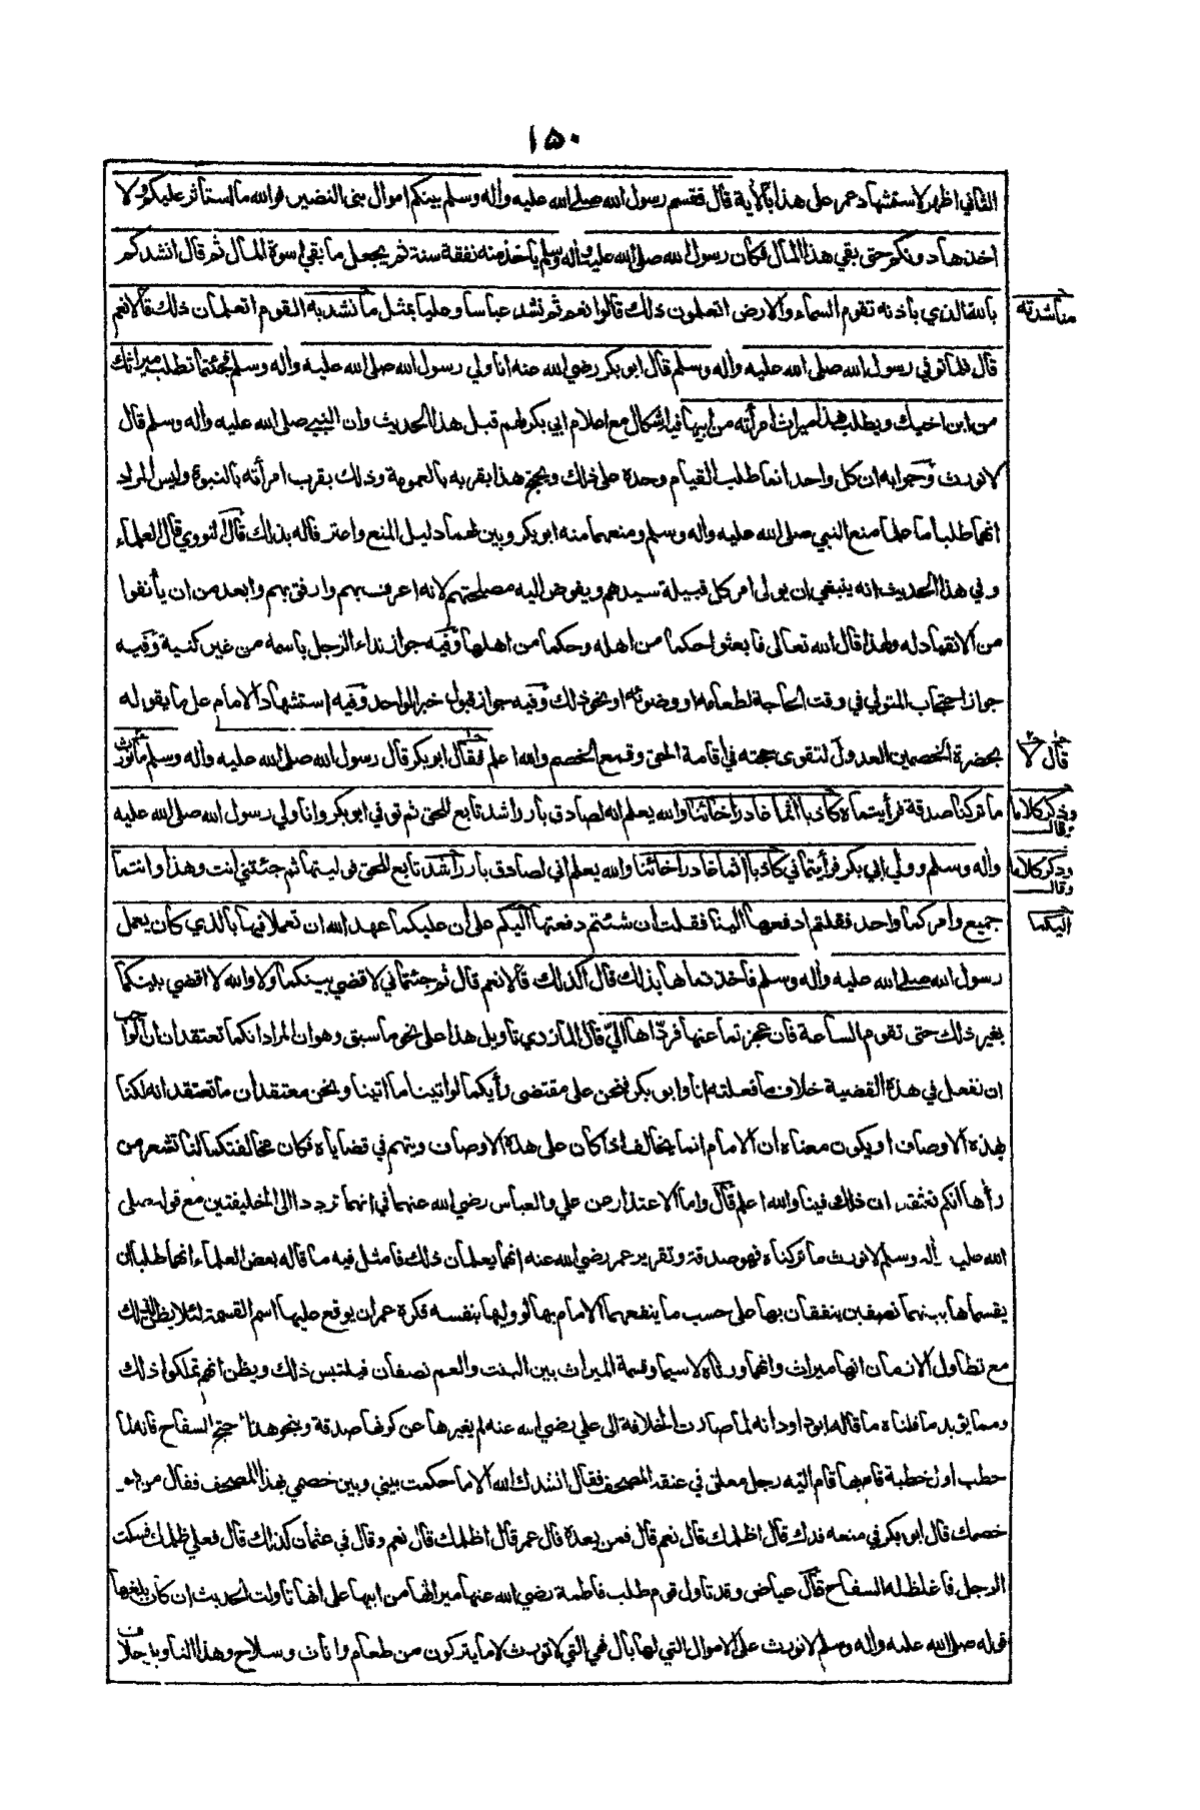 ١٥٠
الثاني اظهر لاستشهاد عمر على هذا بالآية قال فقسم رسول الله صلى الله عليه وآله وسلم بينكم اموال بني النضير فوالله ما استأثر عليكم ولا
اخذها دونكم حتى بقي هذا المال فكان رسول الله صلى الله عليه وآله وسلم يأخذ منه نفقة سنة ثم يجعل ما بقي اسوة المال ثم قال انشدكم
بالله الذي بأذنه تقوم السماء والارض اتعلمون ذلك قالوا نعم ثم نشد عباسا وعليا بمثل ما نشد به القوم اتعلمان ذلك قالا نعم
مناشدته
قال فلما توفي رسول الله صلى الله عليه وآله وسلم قال ابو بكر رضي الله عنه انا ولي رسول الله صلى الله عليه وآله وسلم فجئتما تطلب ميراثك
من ابن اخيك ويطلب هذا ميراث امرأته من ابيها فيه اشكال مع اعلام ابي بكر لهم قبل هذا الحديث وان النبي صلى الله عليه وآله وسلم قال
لا نورث وجوابه ان كل واحد انما طلب القيام وحده على ذلك ويحتج هذا بقربه بالعمومة وذلك بقرب امرأته بالنبوة وليس المراد
انهما طلبا ما علما منع النبي صلى الله عليه وآله وسلم ومنعهما منه ابو بكر وبين لهما دليل المنع واعترفا له بذلك قال النووي قال العلماء
وفي هذا الحديث انه ينبغي ان يولى امر كل قبيلة سيدهم ويفوض اليه مصلحتهم لانه اعرف بهم وارفق بهم وابعد من ان يأنفوا
من الانقياد له ولهذا قال الله تعالى فابعثوا حكما من اهله وحكما من اهلها وفيه جواز نداء الرجل باسمه من غير كنية وفيه
جواز احتجاب المتولي في وقت الحاجة لطعامه او وضوئه او نحو ذلك وفيه جواز قبول خبر الواحد وفيه استشهاد الامام على ما يقوله
بحضرة الخصمين العدول لتقوى حجته في اقامة الحق وقمع الخصم والله اعلم فقال ابو بكر قال رسول الله صلى الله عليه وآله وسلم ما نورث
قال لا
ما تركنا صدقة فرأيتماه كاذبا آثما غادرا خائنا والله يعلم انه لصادق بار راشد تابع للحق ثم توفي ابو بكر وانا ولي رسول الله صلى الله عليه
وذكر كلاما
وقال
وآله وسلم وولي ابي بكر فرأيتماني كاذبا آثما غادرا خائنا والله يعلم اني لصادق بار راشد تابع للحق فوليتها ثم جئتني انت وهذا وانتما
وذكر كلاما
وقال
جميع وامركما واحد فقلتم ادفعها الينا فقلت ان شئتم دفعتها اليكم على ان عليكما عهد الله ان تعملا فيها بالذي كان يعمل
اليكما
رسول الله صلى الله عليه وآله وسلم فأخذتماها بذلك قال اكذلك قالا نعم قال ثم جئتماني لاقضي بينكما ولا والله لا اقضي بينكما
بغير ذلك حتى تقوم الساعة فان عجزتما عنها فردّاها اليّ قال المازري تأويل هذا على نحو ما سبق وهو ان المراد انكما تعتقدان ان الواجب
ان نفعل في هذه القضية خلاف ما فعلته انا وابو بكر فنحن على مقتضى رأيكما لو اتينا ما اتينا ونحن معتقدان ما تعتقدانه لكنا
بهذه الاوصاف او يكون معناه ان الامام انما يخالف اذا كان على هذه الاوصاف ويتهم في قضاياه فكان مخالفتكما لنا تشعر من
رأها انكم تعتقدان ذلك فينا والله اعلم قال واما الاعتذار عن علي والعباس رضي الله عنهما في انهما ترددا الى الخليفتين مع قوله صلى
الله عليه وآله وسلم لا نورث ما تركناه فهو صدقة وتقرير عمر رضي الله عنه انهما يعلمان ذلك فامثل فيه ما قاله بعض العلماء انهما طلبا ان
يقسماها بينهما نصفين ينفقان بها على حسب ما ينفعهما الامام بها لو وليها بنفسه فكره عمر ان يوقع عليها اسم القسمة لئلا يظن لذلك
مع تطاول الازمان انها ميراث وانهما ورثاه لا سيما وقسمة الميراث بين البنت والعم نصفان فيلتبس ذلك ويظن انهم تملكوا ذلك
ومما يؤيد ما قلناه ما قاله ابو داود انه لما صارت الخلافة الى علي رضي الله عنه لم يغيرها عن كونها صدقة وبنحو هذا احتج السفاح فانه لما
خطب اول خطبة قام بها قام اليه رجل معلق في عنقه المصحف فقال انشدك الله الا ما حكمت بيني وبين خصمي بهذا المصحف فقال من هو
خصمك قال ابو بكر في منعه فدك قال اظلمك قال نعم قال فمن بعده قال عمر قال اظلمك قال نعم وقال في عثمان كذلك قال فعلي ظلمك فسكت
الرجل فاغلظ له السفاح قال عياض وقد تاول قوم طلب فاطمة رضي الله عنها ميراثها من ابيها على انها تاولت الحديث ان كان بلغها
قوله صلى الله عليه وآله وسلم لا نورث على الاموال التي لها بال فهي التي لا تورث لا ما يتركون من طعام واثاث وسلاح وهذا التاويل خلاف